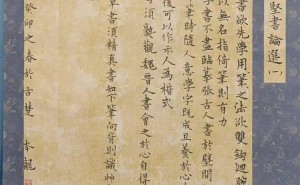 堅書論選(一)
書欲先學用筆之法欲雙鉤迴腕
以無名指倚筆則有力
學書不盡臨摹張古人書於壁間
筆時隨人意學字既成且養於心
後可以作示人為楷式
須熟觀魏晉人書會之於心自得
草書須精真書知下筆向背則識
癸卯之春於古楚 本龍